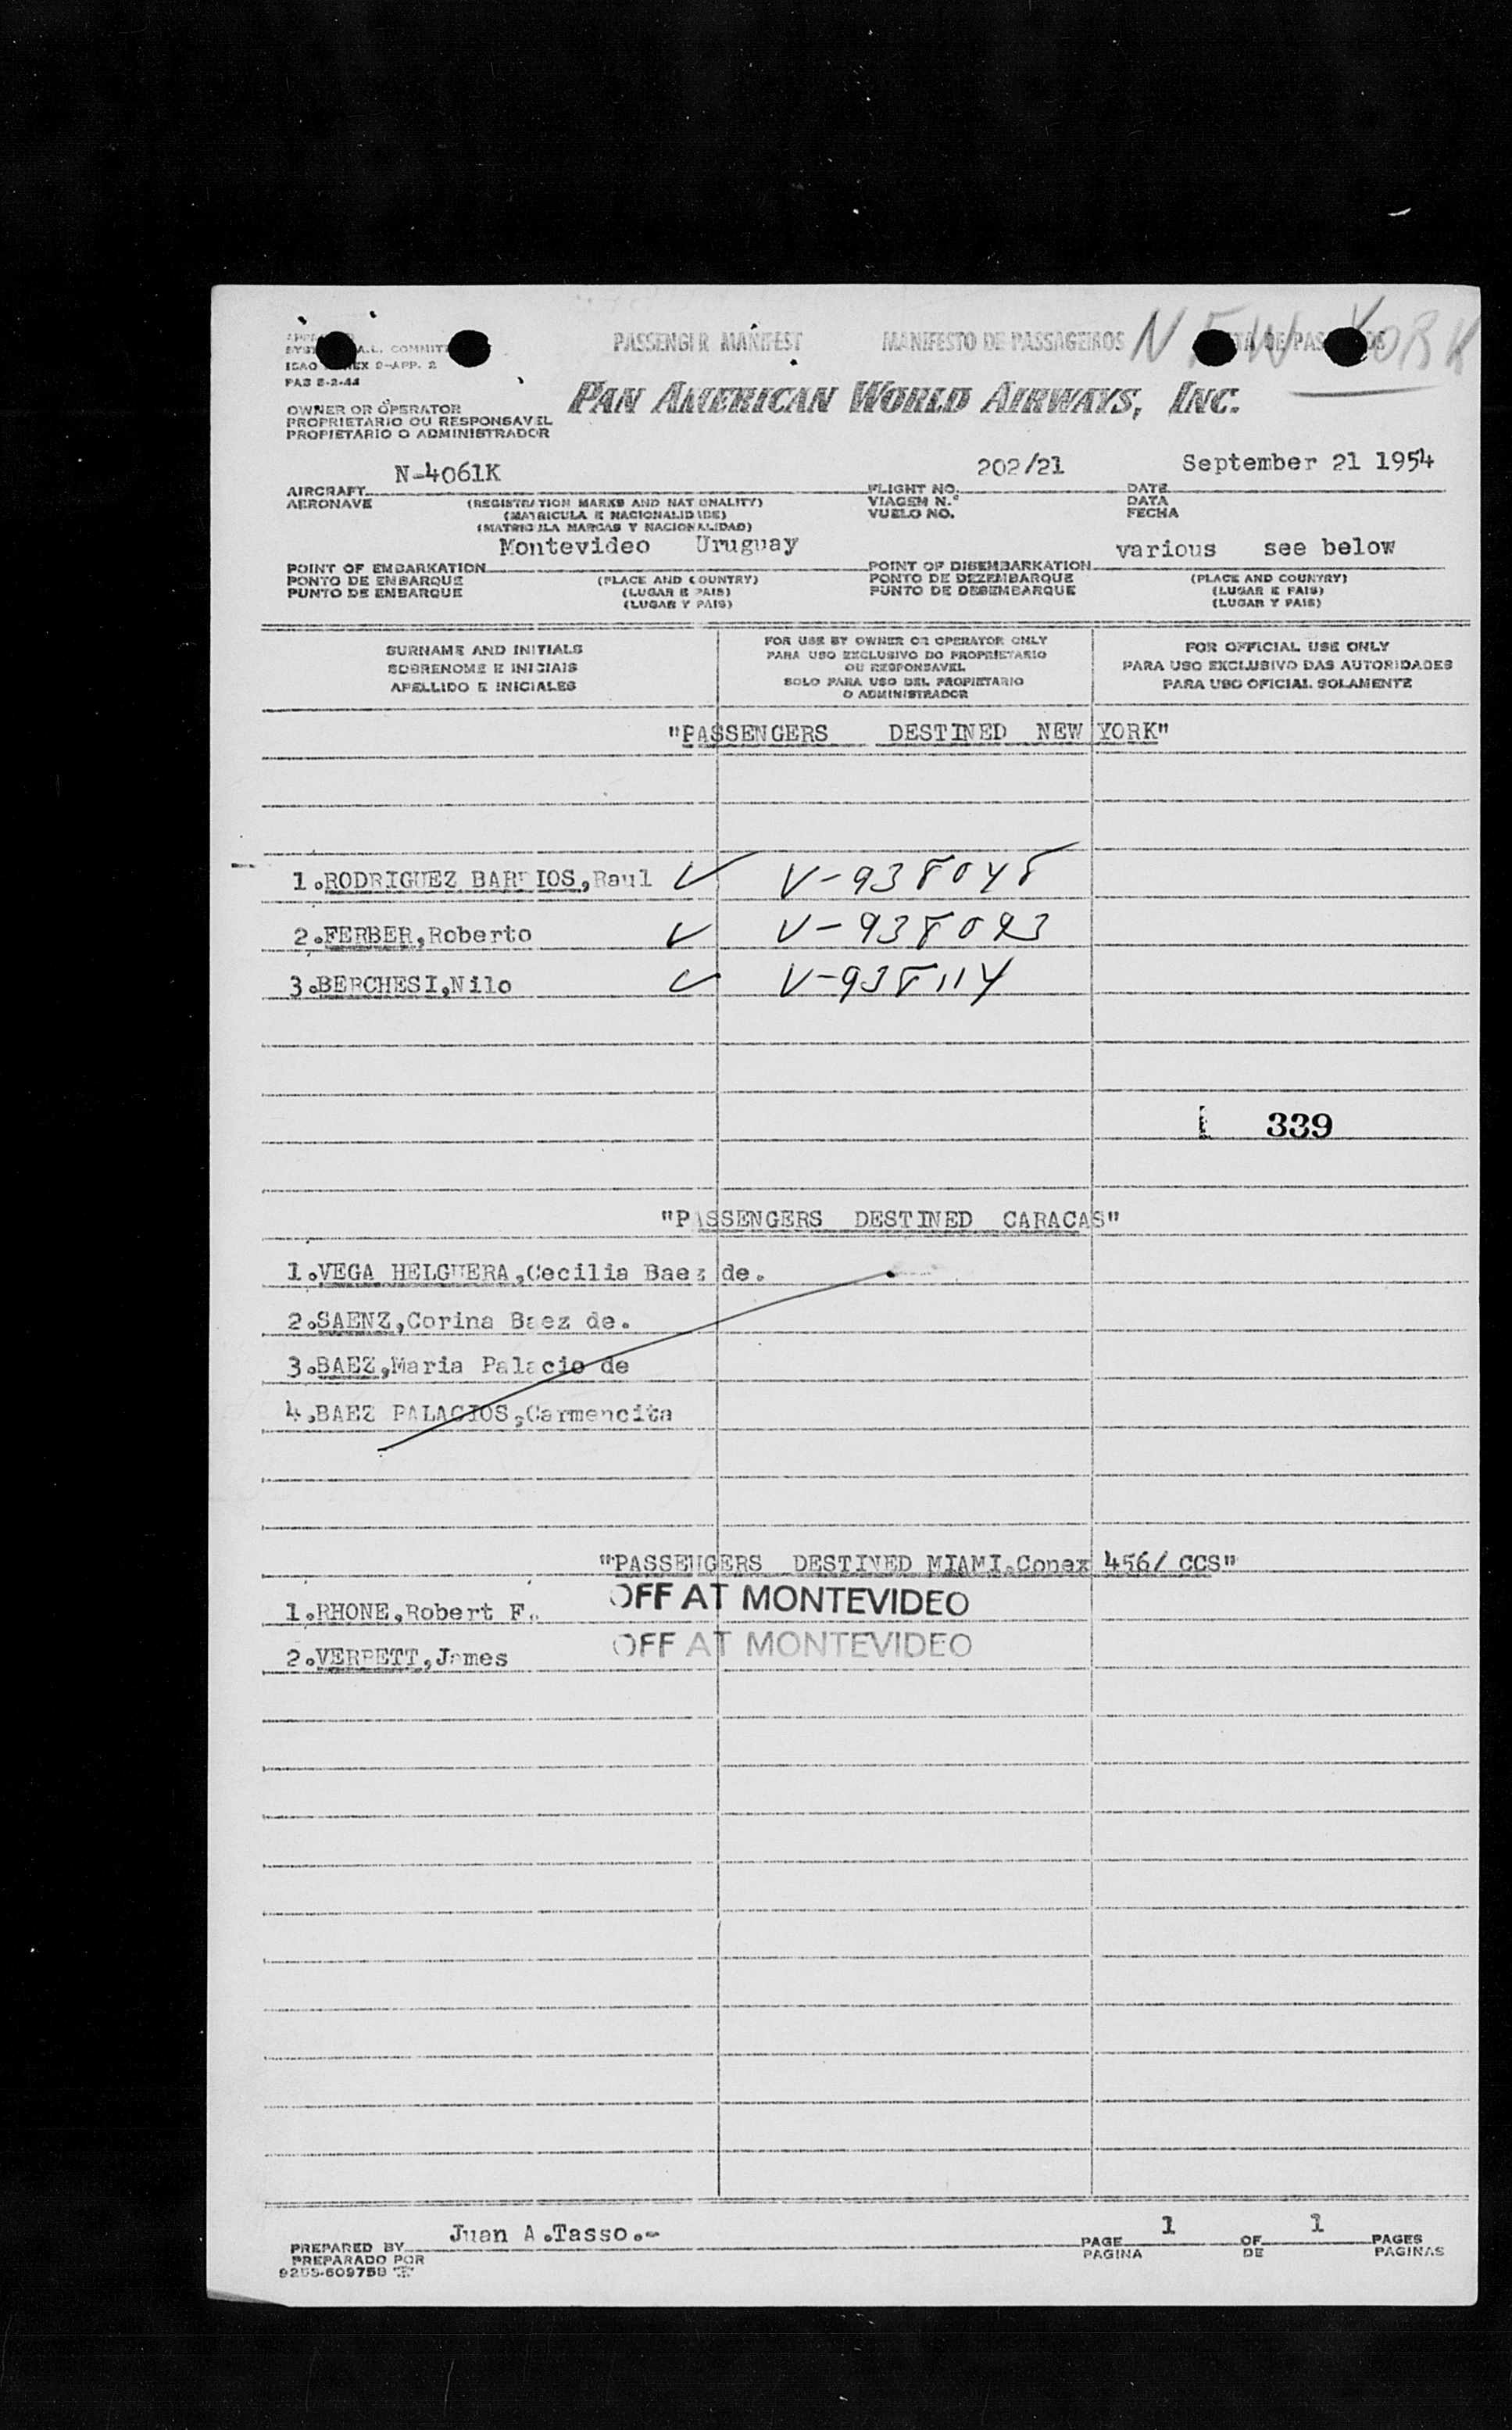 PASSENGER MANIFEST MANIFESTO DE PASSAGEIROS DE PAS
NEW YORK
A.L. COMMIT
ICAO 9-APP. 2
PAB 5-2-44
PAN AMERICAN WORLD AIRWAYS, INC.
OWNER OR OPERATOR
PROPRIETARIO OU RESPONSAVEL
PROPIETARIO O ADMINISTRADOR
N-4061K 202/21 September 21 1954
AIRCRAFT FLIGHT NO. DATE
AERONAVE (REGISTRATION MARKS AND NATIONALITY) VIAGEM N.º DATA
(MATRICULA E NACIONALIDADE) VUELO NO. FECHA
(MATRICULA MARCAS Y NACIONALIDAD)
Montevideo Uruguay various see below
POINT OF EMBARKATION POINT OF DISEMBARKATION
PONTO DE EMBARQUE (PLACE AND COUNTRY) PONTO DE DEZEMBARQUE (PLACE AND COUNTRY)
PUNTO DE EMBARQUE (LUGAR E PAIS) PUNTO DE DESEMBARQUE (LUGAR E PAIS)
(LUGAR Y PAIS) (LUGAR Y PAIS)
SURNAME AND INITIALS
SOBRENOME E INICIAIS
APELLIDO E INICIALES
FOR USE BY OWNER OR OPERATOR ONLY
PARA USO EXCLUSIVO DO PROPRIETARIO
OU RESPONSAVEL
SOLO PARA USO DEL PROPIETARIO
O ADMINISTRADOR
FOR OFFICIAL USE ONLY
PARA USO EXCLUSIVO DAS AUTORIDADES
PARA USO OFICIAL SOLAMENTE
"PASSENGERS DESTINED NEW YORK"
1.RODRIGUEZ BARRIOS,Raul ✓ V-938048
2.FERBER,Roberto ✓ V-938093
3.BERCHESI,Nilo ✓ V-938114
339
"PASSENGERS DESTINED CARACAS"
1.VEGA HELGUERA,Cecilia Baez de.
2.SAENZ,Corina Baez de.
3.BAEZ,Maria Palacio de
4.BAEZ PALACIOS,Carmencita
"PASSENGERS DESTINED MIAMI.Conex 456/ CCS"
1.RHONE,Robert F. OFF AT MONTEVIDEO
2.VERPETT,James OFF AT MONTEVIDEO
Juan A.Tasso.- 1 1
PREPARED BY PAGE OF PAGES
PREPARADO POR PAGINA DE PAGINAS
9255-609758